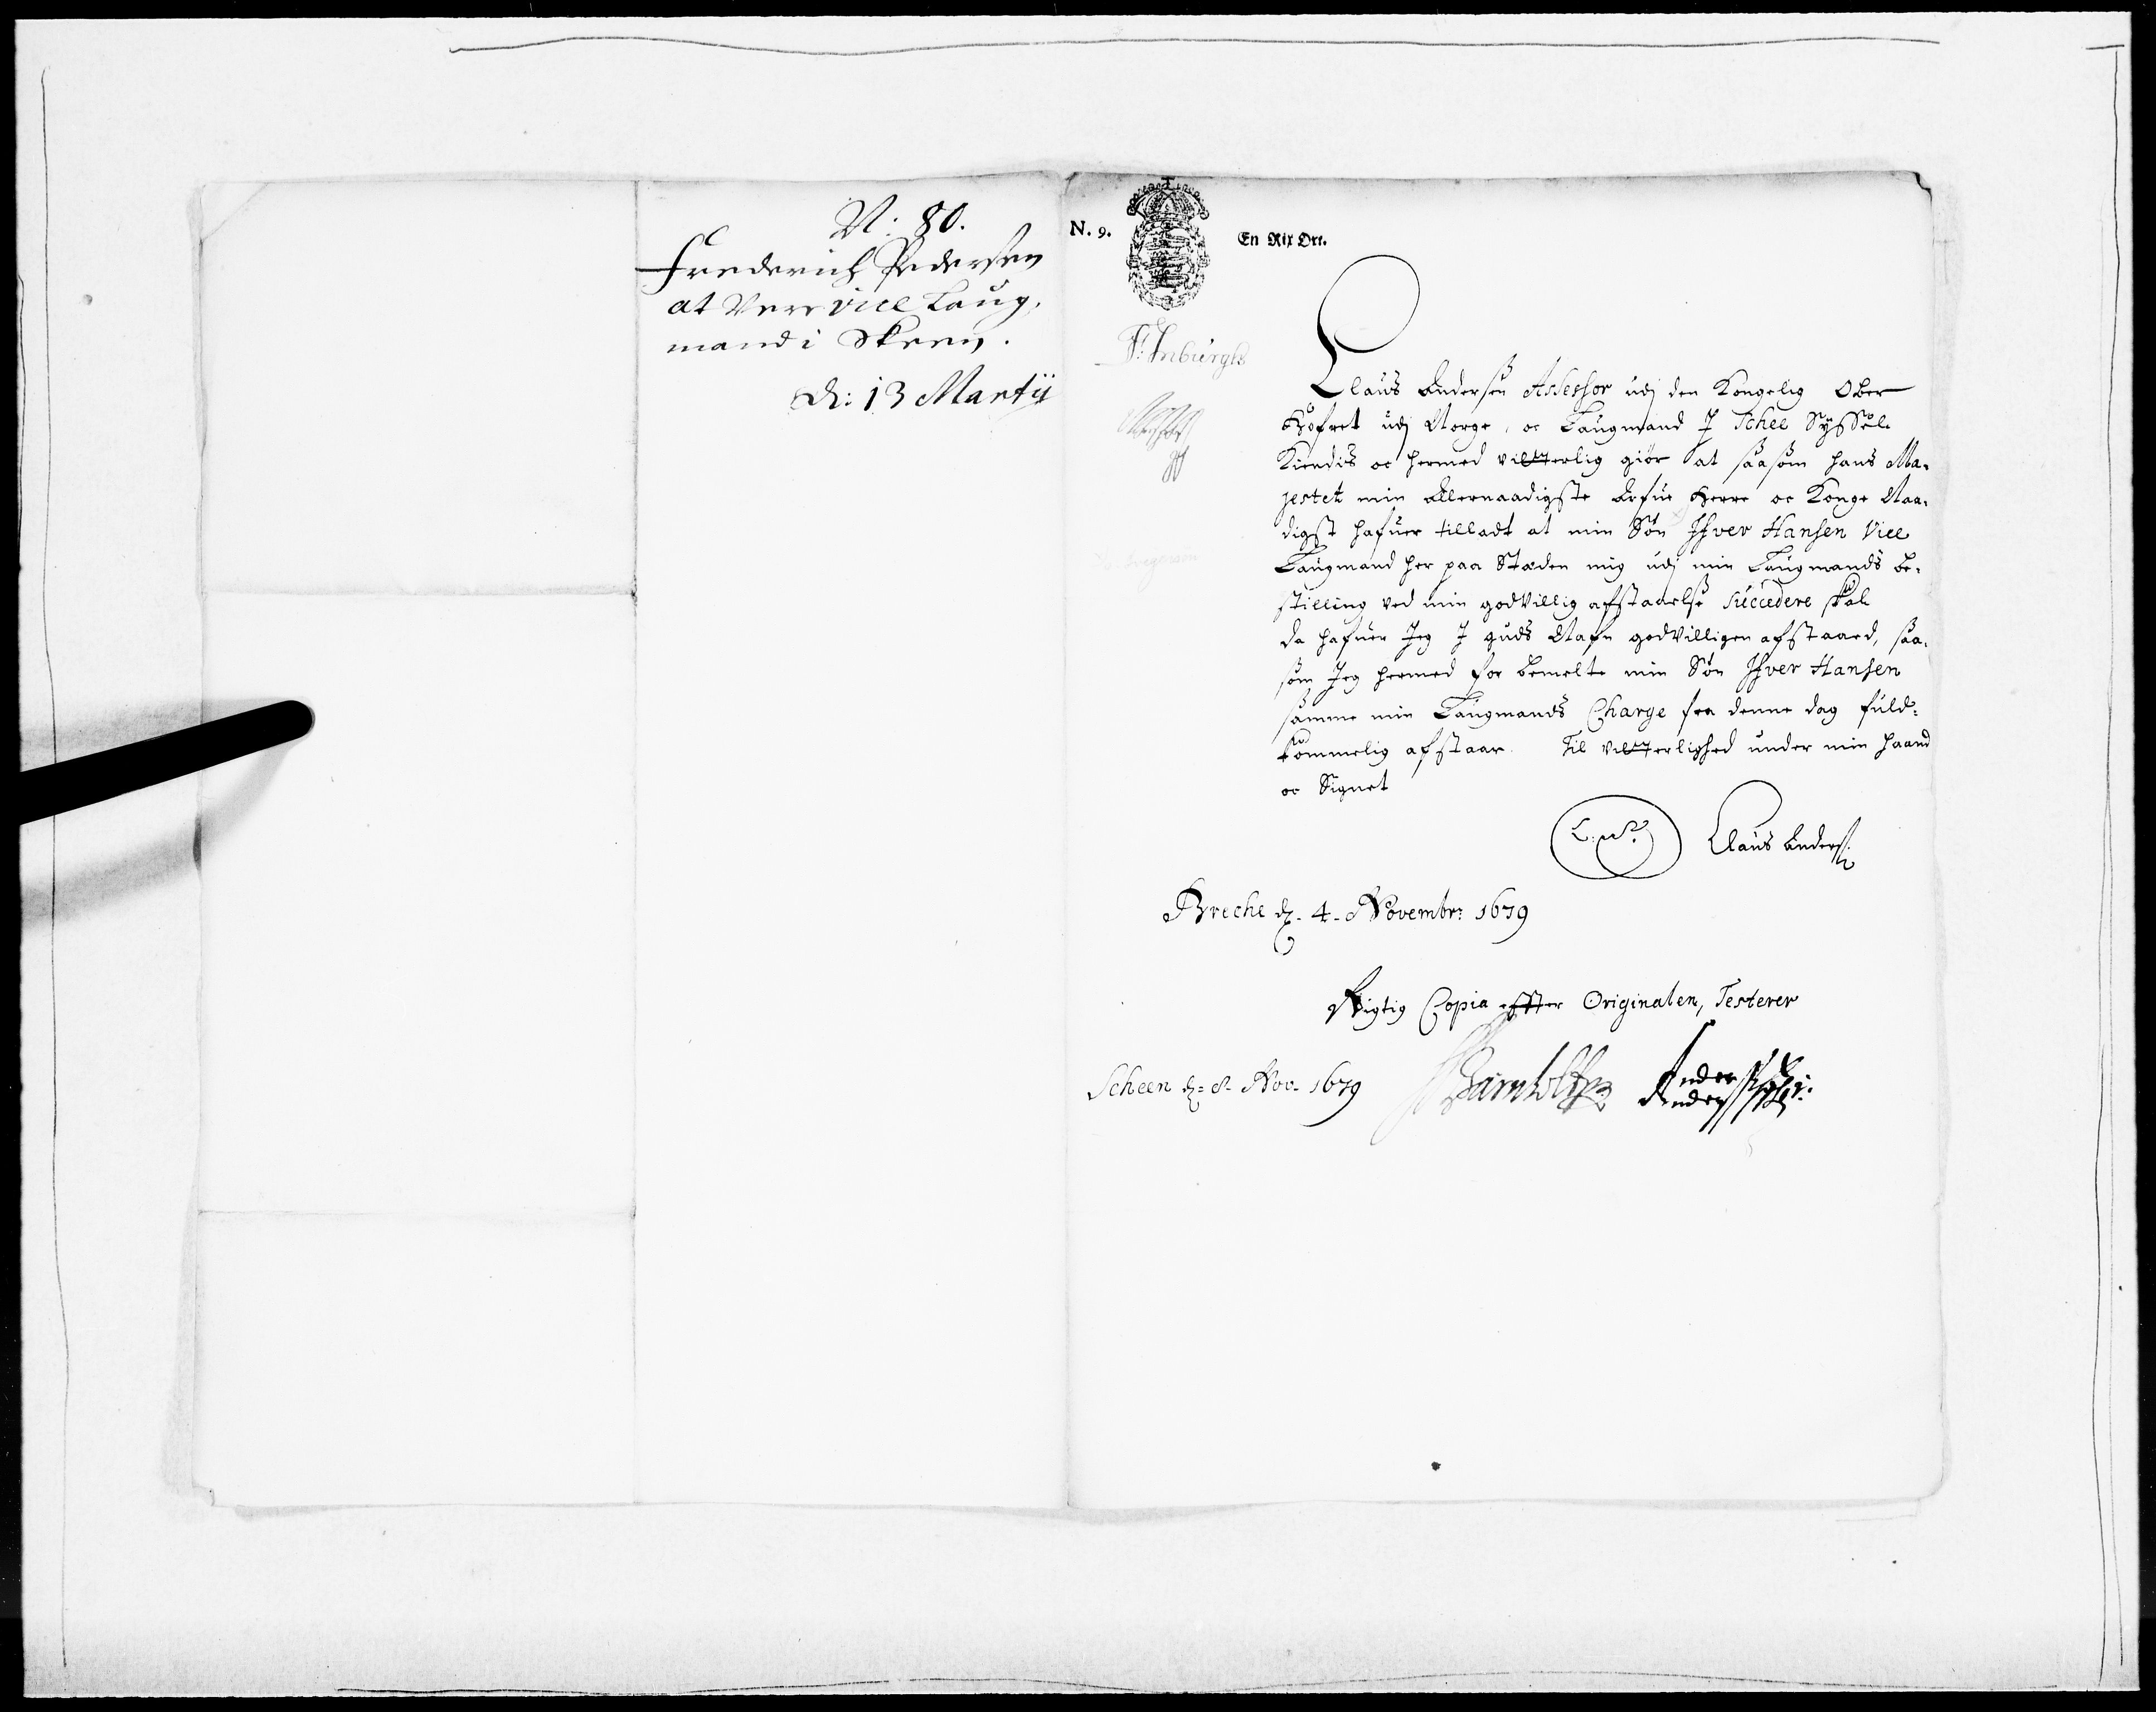 N: 80.
Frederich Pedersen
at Vere vice Laug,
mand i Skeen.
d: 13 Martij
N. 9.
En Rix Ort.
Claus Andersen Assessor udj den Kongelig Ober
Hofret udj Norge, oc Laugmand J Schee Sÿssel
Kiendis oc hermed vitterlig giör at saasom hans Ma-
jestet min Allernaadigste Arfue Herre oc Konge Naa-
digst hafuer tilladt at min Søn Ifver Hansen Vice
Laugmand her paa Stæden mig udj min Laugmands be-
stilling ved min godvillig afstaaelse succedere skal
da hafuer Jeg J guds Nafn godvilligen afstaaed, saa-
som Jeg hermed for bemelte min Søn Ifver Hansen
samme min Laugmands Charge fra denne dag fuld-
kommelig afstaar. Til vitterlighed under min haand
oc Signet
Claus Anders:
Breche d. 4. Novembr: 1679
Rigtig Copia effter Originalen, Testerer
Scheen d: 8. Nov. 1679